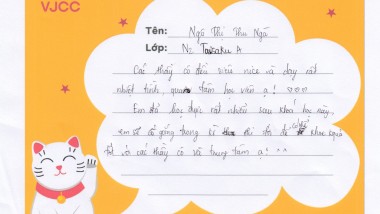 VJCC
Tên: Ngô Thị Thu Ngà
Lớp: N2 Taisaku A
Các thầy cô đều siêu nice và dạy rất
nhiệt tình, quan tâm học viên ạ!
Em đã học được rất nhiều sau khoá học này,
em sẽ cố gắng trong kì thi để có thể khoe quả
tốt với các thầy cô và trung tâm ạ!